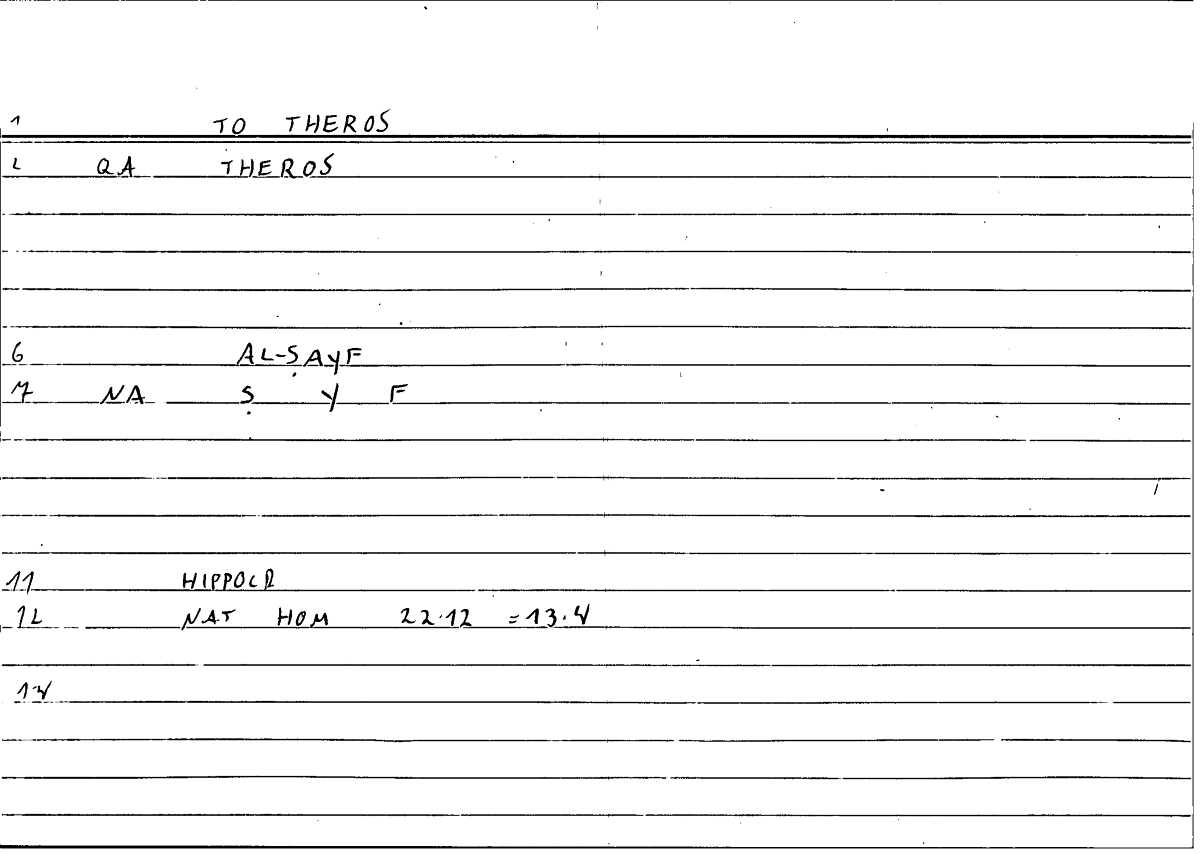 1 TO THEROS
2 QA THEROS
6 AL-ṢAYF
7 NA Ṣ Y F
11 HIPPOCR
12 NAT HOM 22.12 = 13.4
14